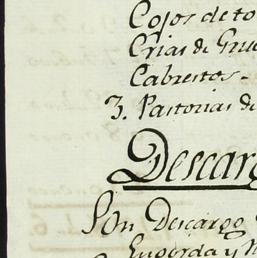 Cojos de to
Crias de Gru
Cabrestos.
3. Pastorias de
Descar
Son Descargo
Engorda y